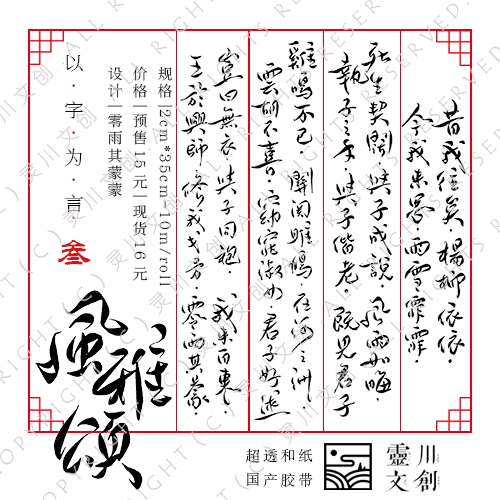 昔我往矣。楊柳依依。
今我来思。雨雪霏霏。
死生契闊。與子成說。風雨如晦。
執子之手。與子偕老。既見君子
雞鳴不已。關關雎鳩。在河之洲。
雲胡不喜。窈窕淑女。君子好逑
豈曰無衣。與子同袍。我来自東。
王於興師。修我戈矛。零雨其蒙
规格|2cm*35cm-10m/roll
价格|预售15元|现货16元
设计|零雨其蒙蒙
以·字·为·言·
叁
風雅頌
超透和纸
国产胶带
靈川
文創
COPYRIGHT (C) 灵川文创 ALL RIGHTS RESERVED.